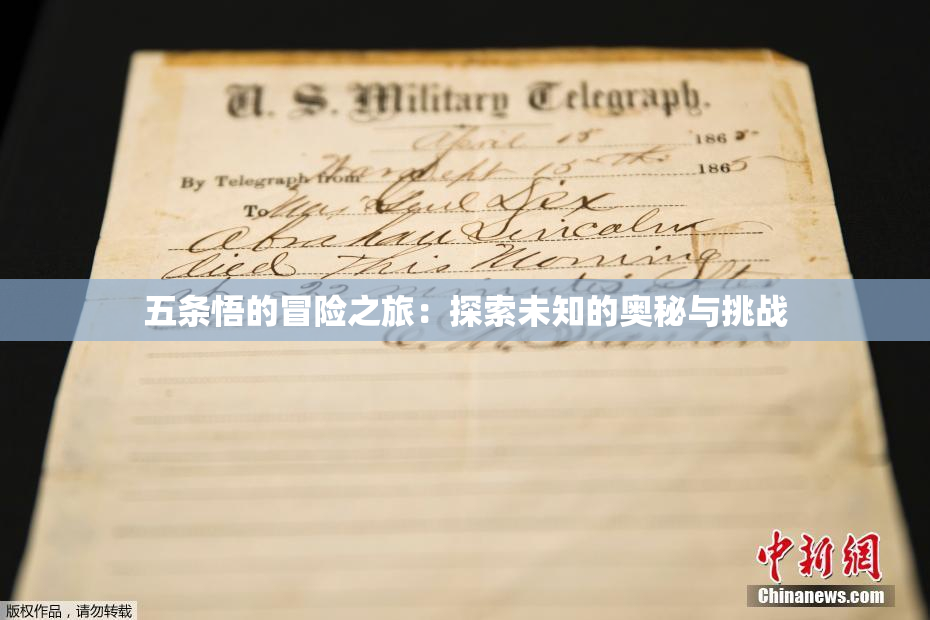 U. S. Military Telegraph.
April 15 1865
By Telegraph from War Dept 15th 1865
To Maj Genl Dix
Abraham Lincoln
died This Morning
22 minutes after
五条悟的冒险之旅：探索未知的奥秘与挑战
E. M. Stanton
中新网
Chinanews.com
版权作品，请勿转载